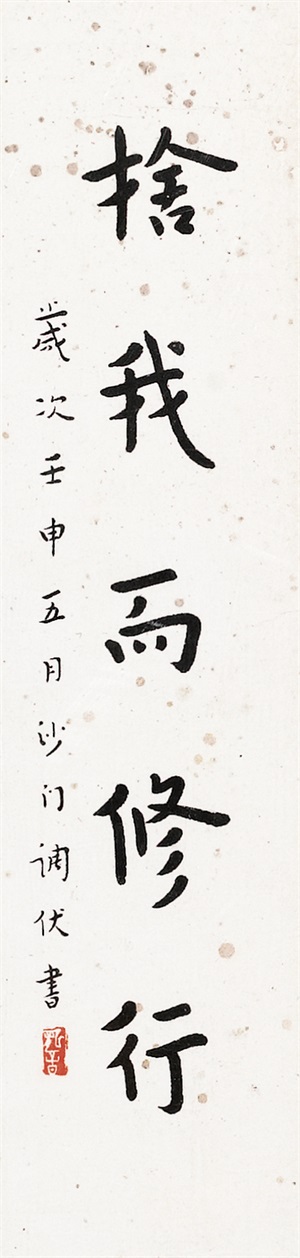 捨我而修行
歲次壬申五月沙门調伏書
弘音